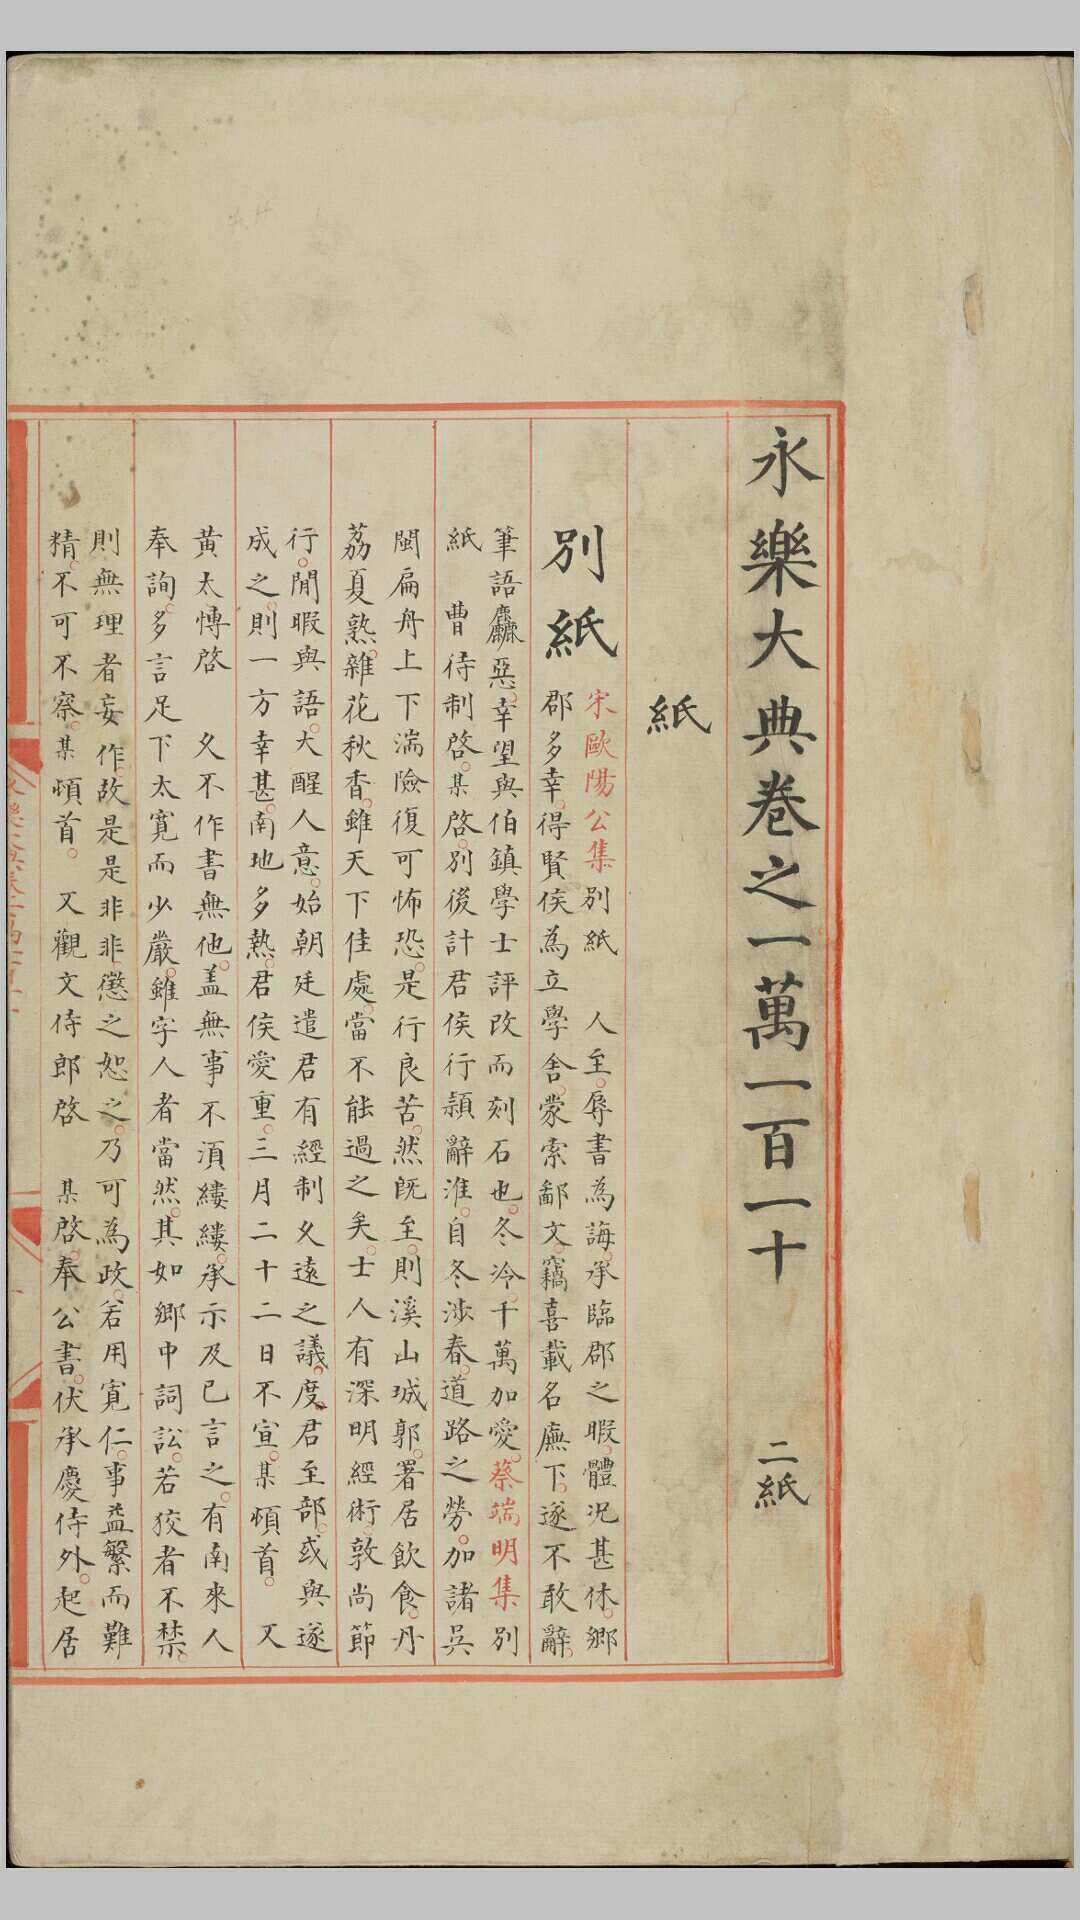 永樂大典卷之一萬一百一十 二紙
紙
別紙
宋歐陽公集別紙 人至。辱書為誨。承臨郡之暇。體況甚休。鄉
郡多幸。得賢侯為立學舍。蒙索鄙文。竊喜載名廡下。遂不敢辭。
筆語麤惡。幸望與伯鎮學士評改而刻石也。冬冷。千萬加愛。蔡端明集別
紙 曹待制啓。某啓。別後計君侯行潁辭淮。自冬涉春。道路之勞。加諸吳
閩扁舟上下湍險復可怖恐。是行良苦。然既至。則溪山城郭。署居飲食。丹
荔夏熟。雜花秋香。雖天下佳處。當不能過之矣。士人有深明經術。敦尚節
行。閒暇與語。大醒人意。始朝廷遣君有經制久遠之議。度君至部。或與遂
成之。則一方幸甚。南地多熱。君侯愛重。三月二十二日不宣。某頓首。 又
黃太博啓 久不作書無他。盖無事不須縷縷。承示及已言之。有南來人
奉詢。多言足下太寬而少嚴。雖字人者當然。其如鄉中詞訟。若狡者不禁。
則無理者妄作。故是是非非。懲之恕之。乃可為政。若用寛仁。事益繁而難
精。不可不察。某頓首。 又觀文侍郎啓 某啓。奉公書。伏承慶侍外。起居